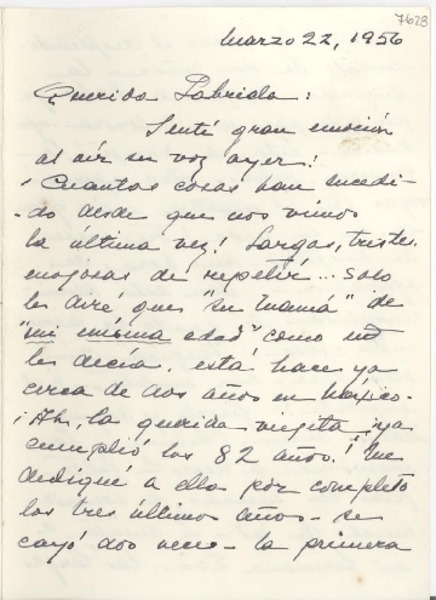 7628
Marzo 22, 1956
Querida Gabriela:
Sentí gran emoción
al oír su voz ayer!
¡Cuantas cosas han sucedi-
-do desde que nos vimos
la última vez! Largas, tristes
enojosas de repetir... Solo
les diré que "su mamá" de
"mi misma edad" como ud
les decía, está hace ya
cerca de dos años en México.
¡Ah, la querida viejita ya
cumplió los 82 años! Me
dediqué a ella por completo
los tres últimos años - se
cayó dos veces - la primera